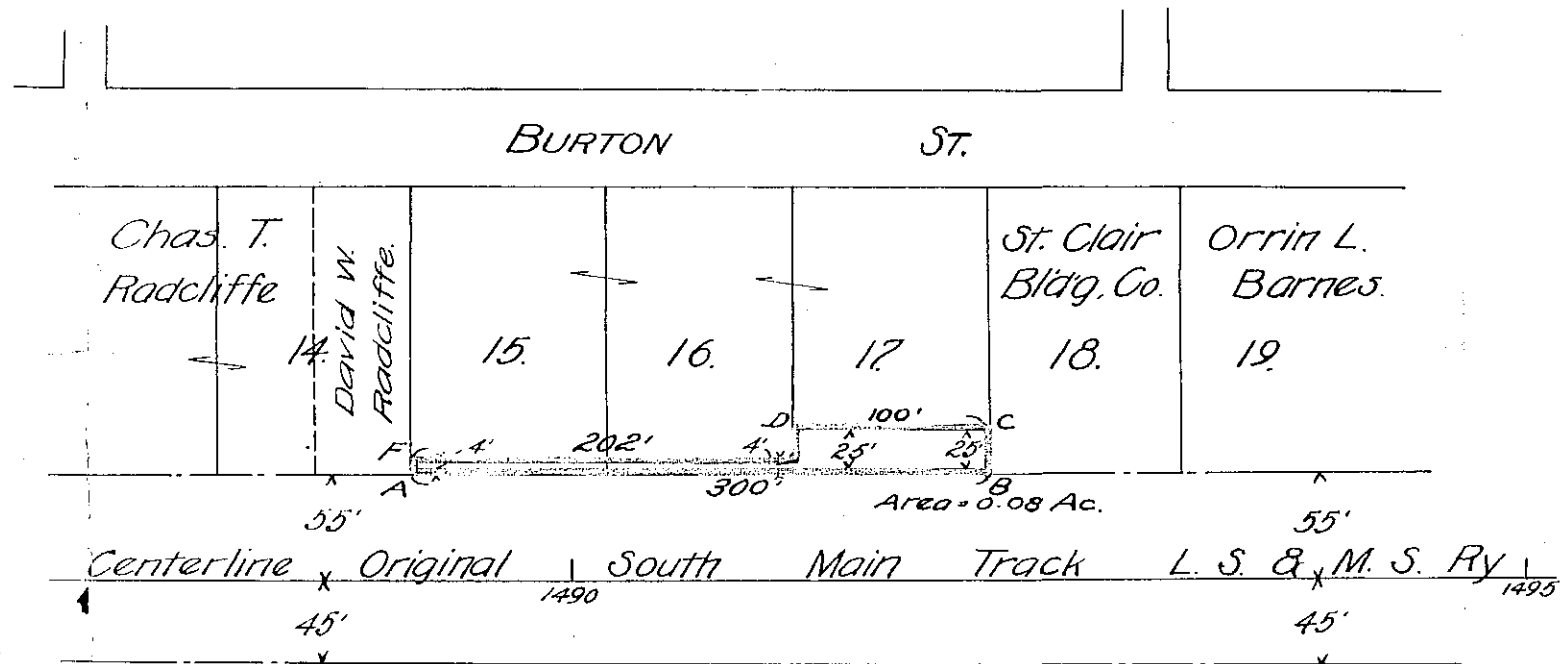 BURTON ST.
Chas. T.
Radcliffe
David W.
Radcliffe.
St. Clair
Bldg. Co.
Orrin L.
Barnes.
14. 15. 16. 17. 18. 19.
D 100' C
F 4' 202' 4' 25' 25'
A 300' B
Area = 0.08 Ac.
55' 55'
Centerline Original South Main Track L. S. & M. S. Ry
1490 1495
45' 45'